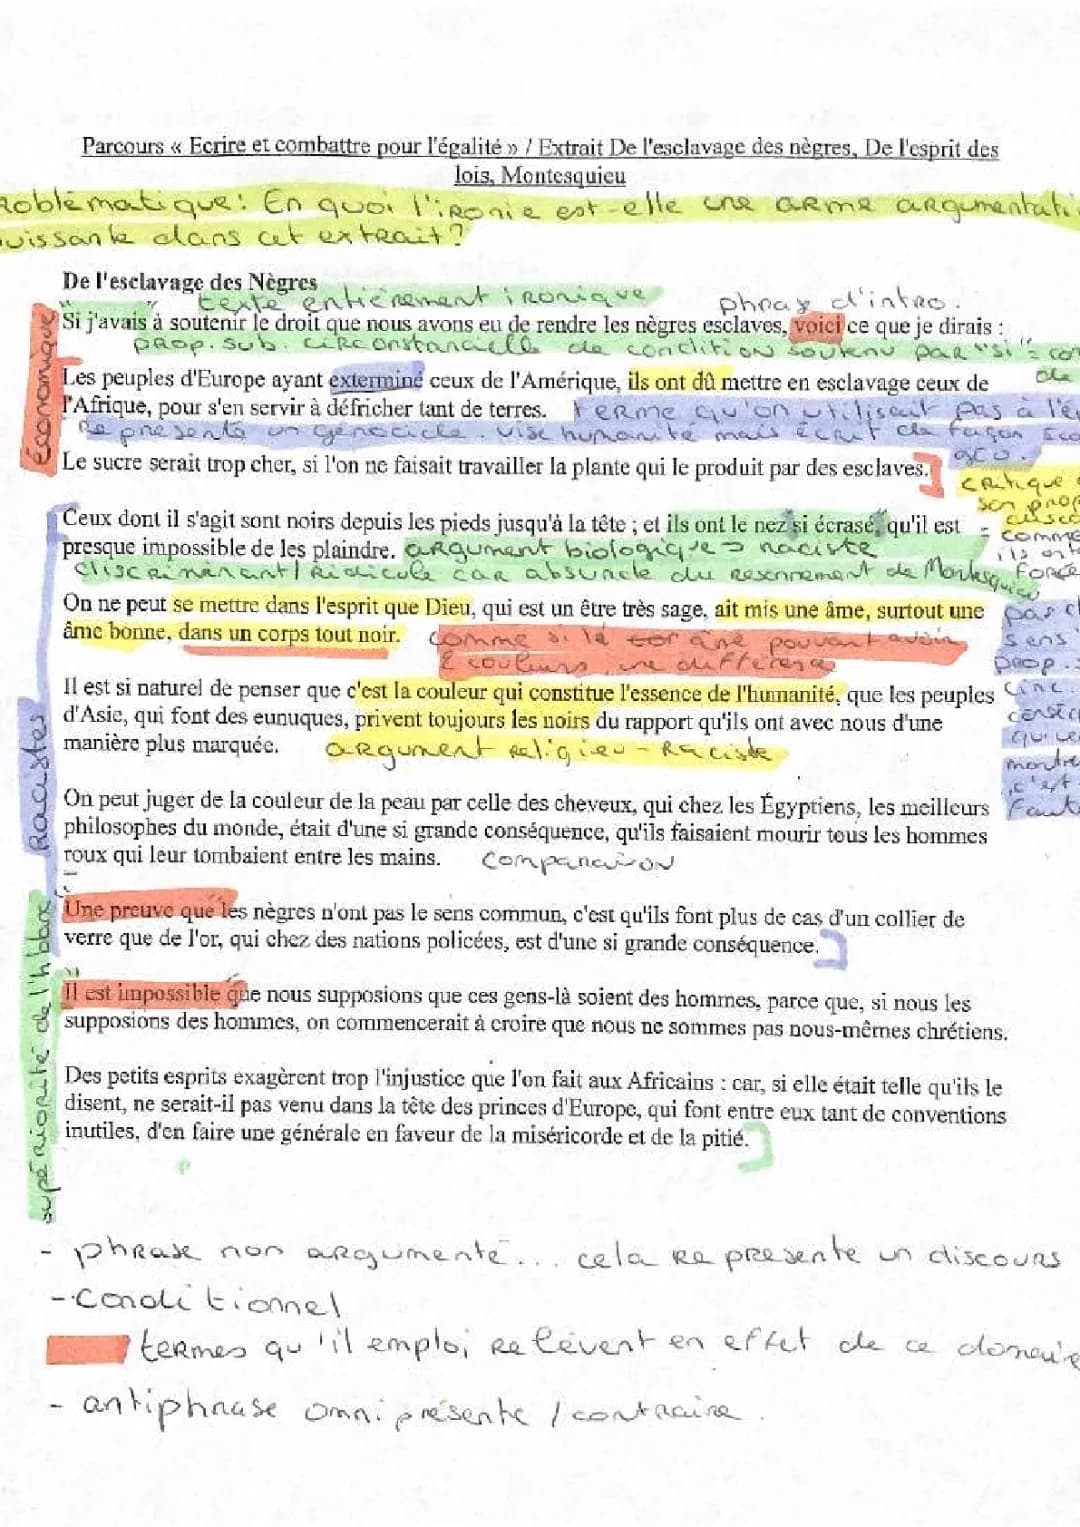 Parcours « Ecrire et combattre pour l'égalité » / Extrait De l'esclavage des nègres, De l'esprit des
lois, Montesquieu
roblématique: En quoi l'ironie est-elle une arme argumentati
uissante dans cet extrait?
De l'esclavage des Nègres
texte entièrement ironique
phrase d'intro.
Si j'avais à soutenir le droit que nous avons eu de rendre les nègres esclaves, voici ce que je dirais :
prop. sub. circonstancielle de condition soutenu par "si" = con
de
économique
Les peuples d'Europe ayant exterminé ceux de l'Amérique, ils ont dû mettre en esclavage ceux de
l'Afrique, pour s'en servir à défricher tant de terres.
terme qu'on utilisait pas à l'é
Représente un génocide. vise humanité mais écrit de façon éco
Le sucre serait trop cher, si l'on ne faisait travailler la plante qui le produit par des esclaves.
critique
son prop
disco
Ceux dont il s'agit sont noirs depuis les pieds jusqu'à la tête ; et ils ont le nez si écrasé, qu'il est
presque impossible de les plaindre.
argument biologique → raciste
discriminant/Ridicule car absurde du resonnement de Montesquieu
= comme
ils ont
forcé
On ne peut se mettre dans l'esprit que Dieu, qui est un être très sage, ait mis une âme, surtout une
âme bonne, dans un corps tout noir.
comme si le âme pouvait avoir
2 couleurs, une différence
pas
sens
prop.
circ.
Il est si naturel de penser que c'est la couleur qui constitue l'essence de l'humanité, que les peuples
d'Asie, qui font des eunuques, privent toujours les noirs du rapport qu'ils ont avec nous d'une
manière plus marquée.
argument religieu - Raciste
montre
c'est
Racistes
On peut juger de la couleur de la peau par celle des cheveux, qui chez les Égyptiens, les meilleurs
philosophes du monde, était d'une si grande conséquence, qu'ils faisaient mourir tous les hommes
roux qui leur tombaient entre les mains.
Comparaison
Une preuve que les nègres n'ont pas le sens commun, c'est qu'ils font plus de cas d'un collier de
verre que de l'or, qui chez des nations policées, est d'une si grande conséquence.
supériorité de l'h blanc
Il est impossible que nous supposions que ces gens-là soient des hommes, parce que, si nous les
supposions des hommes, on commencerait à croire que nous ne sommes pas nous-mêmes chrétiens.
Des petits esprits exagèrent trop l'injustice que l'on fait aux Africains : car, si elle était telle qu'ils le
disent, ne serait-il pas venu dans la tête des princes d'Europe, qui font entre eux tant de conventions
inutiles, d'en faire une générale en faveur de la miséricorde et de la pitié.
- phrase non argumenté... cela représente un discours
- Conditionnel
termes qu'il emploi relèvent en effet de ce domaine
- antiphrase omniprésente / contraire.